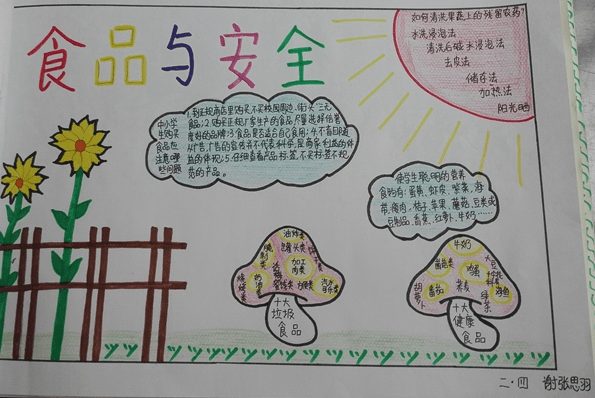 食品与安全
如何清洗果蔬上的残留农药?
水洗浸泡法
清洗后碱水浸泡法
去皮法
储存法
加热法
阳光晒
中小学
生购买
食品应
注意哪
些问题
1.到正规商店里购买,不买校园周边、街头"三无
食品;2.购买正规厂家生产的食品,尽量选择信誉
度好的品牌;3.食品是否适合自己食用;4.不盲目随
从广告,广告的宣传并不代表科学,是商家利益的体
5.仔细查看产品标签,不买标签不规
范的产品。
使学生聪明的营养
食物有:蛋黄、虾皮、紫菜、海
带、瘦肉、桔子、苹果、蘑菇、豆类或
豆制品、香蕉、红萝卜、牛奶……
油炸类
罐头类
腌制类
加工
肉类
烧烤类
方便类
汽水
可乐类
十大
垃圾
食品
牛奶
菌菇类
鸡蛋
大豆
番茄
荞麦
胡萝卜
绿茶
海鱼
十大
健康
食品
二·四 谢张思羽